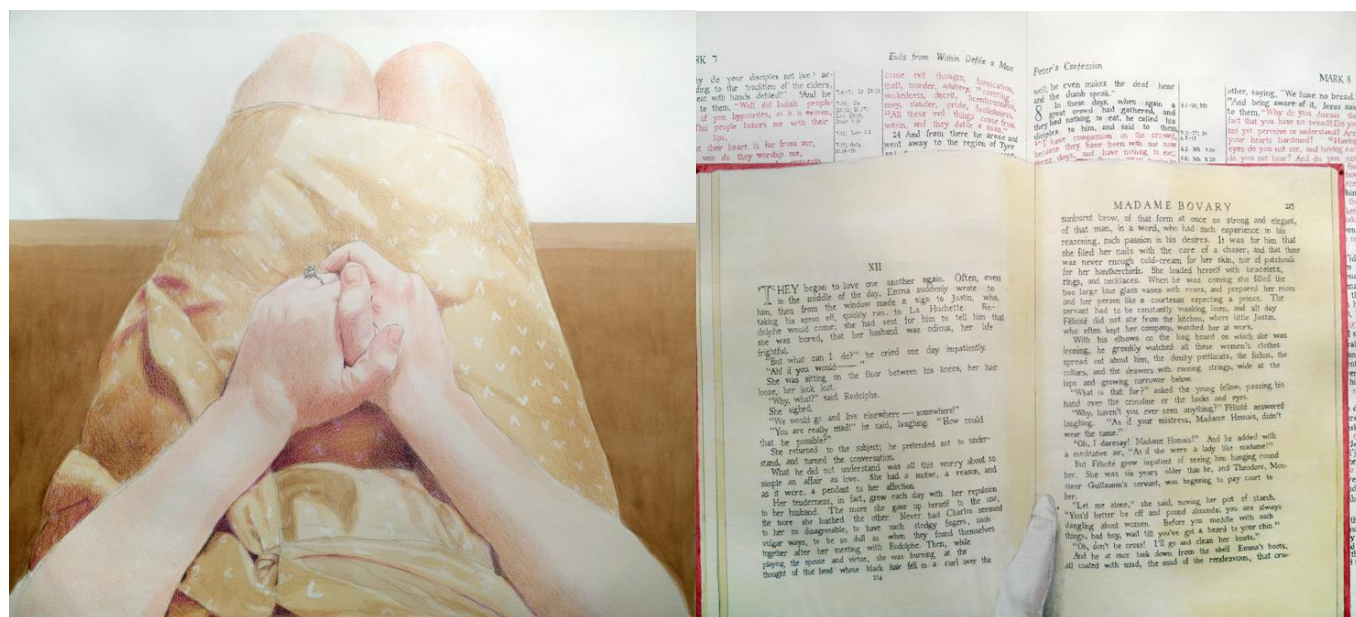 RK 7
do your disciples not live
to the tradition of the elders,
with hands defiled?" And he
to them, "Well did Isaiah
of you hypocrites, as it is written,
people honors me with their
lips,
their heart is far from me;
do they worship me,
Evils from Within Defile a Man
come evil thoughts, fornication,
theft, murder, adultery, coveting,
wickedness, deceit, licentiousness,
envy, slander, pride, foolishness.
All these evil things come from
within, and they defile a man."
24 And from there he arose and
went away to the region of Tyre
Peter's Confession
well; he even makes the deaf hear
and the dumb speak."
8 In those days, when again a
great crowd had gathered, and
they had nothing to eat, he called his
disciples to him, and said to them,
"I have compassion on the crowd,
because they have been with me now
days, and have nothing to eat;
MARK 8
other, saying, "We have no bread."
And being aware of it, Jesus said
to them, "Why do you discuss the
fact that you have no bread? Do you
not yet perceive or understand? Are
your hearts hardened? Having
eyes do you not see, and having
do you not hear? And do you not
XII
THEY began to love one another again. Often, even
in the middle of the day, Emma suddenly wrote to
him, then from the window made a sign to Justin, who,
taking his apron off, quickly ran to La Huchette. Ro-
dolphe would come; she had sent for him to tell him that
she was bored, that her husband was odious, her life
frightful.
"But what can I do?" he cried one day impatiently.
"Ah! if you would——"
She was sitting on the floor between his knees, her hair
loose, her look lost.
"Why, what?" said Rodolphe.
She sighed.
"We would go and live elsewhere — somewhere!"
"You are really mad!" he said, laughing. "How could
that be possible?"
She returned to the subject; he pretended not to under-
stand, and turned the conversation.
What he did not understand was all this worry about so
simple an affair as love. She had a motive, a reason, and
as it were, a pendant to her affection.
Her tenderness, in fact, grew each day with her repulsion
to her husband. The more she gave up herself to the one,
the more she loathed the other. Never had Charles seemed
to her so disagreeable, to have such stodgy fingers, such
vulgar ways, to be so dull as when they found themselves
together after her meeting with Rodolphe. Then, while
playing the spouse and virtue, she was burning at the
thought of that head whose black hair fell in a curl over the
214
MADAME BOVARY 215
sunburnt brow, of that form at once so strong and elegant,
of that man, in a word, who had such experience in his
reasoning, such passion in his desires. It was for him that
she filed her nails with the care of a chaser, and that there
was never enough cold-cream for her skin, nor of patchouli
for her handkerchiefs. She loaded herself with bracelets,
rings, and necklaces. When he was coming she filled the
two large blue glass vases with roses, and prepared her room
and her person like a courtesan expecting a prince. The
servant had to be constantly washing linen, and all day
Félicité did not stir from the kitchen, where little Justin,
who often kept her company, watched her at work.
With his elbows on the long board on which she was
ironing, he greedily watched all these women's clothes
spread out about him, the dimity petticoats, the fichus, the
collars, and the drawers with running strings, wide at the
hips and growing narrower below.
"What is that for?" asked the young fellow, passing his
hand over the crinoline or the hooks and eyes.
"Why, haven't you ever seen anything?" Félicité answered
laughing. "As if your mistress, Madame Homais, didn't
wear the same."
"Oh, I daresay! Madame Homais!" And he added with
a meditative air, "As if she were a lady like madame!"
But Félicité grew impatient of seeing him hanging round
her. She was six years older than he, and Theodore, Mon-
sieur Guillaumin's servant, was beginning to pay court to
her.
"Let me alone," she said, moving her pot of starch.
"You'd better be off and pound almonds; you are always
dangling about women. Before you meddle with such
things, bad boy, wait till you've got a beard to your chin."
"Oh, don't be cross! I'll go and clean her boots."
And he at once took down from the shelf Emma's boots,
all coated with mud, the mud of the rendezvous, that cru-